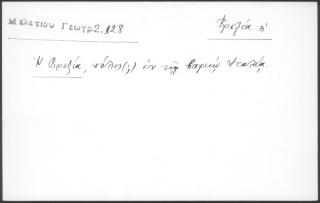 Μελετίου Γεωγρ.2.128
Βρεξία ἡ
Ἡ Βρεξία, πόλις(;) ἐν τῇ βορείῳ Ἰταλίᾳ.